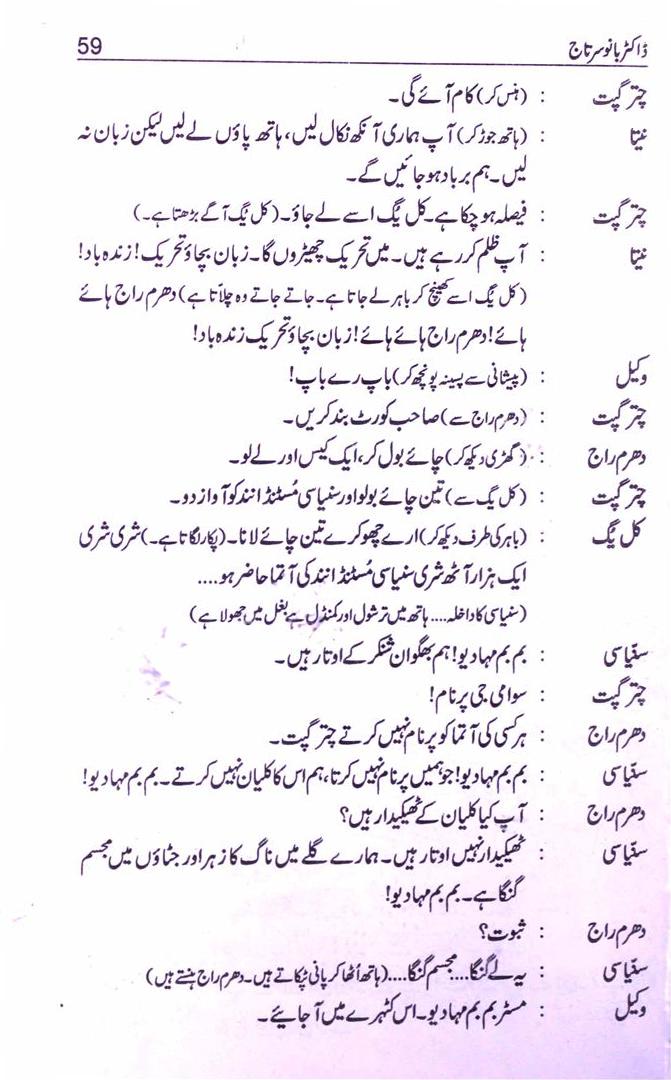 ڈاکٹر بانو سرتاج 59
چتر گپت : (ہنس کر) کام آئے گی۔
نیتا : (ہاتھ جوڑ کر) آپ ہماری آنکھ نکال لیں، ہاتھ پاؤں لے لیں لیکن زبان نہ
لیں۔ ہم برباد ہو جائیں گے۔
چتر گپت : فیصلہ ہو چکا ہے۔ کل یُگ اسے لے جاؤ۔ (کل یُگ آگے بڑھتا ہے۔)
نیتا : آپ ظلم کر رہے ہیں۔ میں تحریک چھیڑوں گا۔ زبان بچاؤ تحریک! زندہ باد!
(کل یُگ اسے کھینچ کر باہر لے جاتا ہے۔ جاتے جاتے وہ چلاّتا ہے) دھرم راج ہائے
ہائے! دھرم راج ہائے ہائے! زبان بچاؤ تحریک زندہ باد!
وکیل : (پیشانی سے پسینہ پونچھ کر) باپ رے باپ!
چتر گپت : (دھرم راج سے) صاحب کورٹ بند کریں۔
دھرم راج : (گھڑی دیکھ کر) چائے بول کر، ایک کیس اور لے لو۔
چتر گپت : (کل یگ سے) تین چائے بولو اور سنیاسی مُسٹنڈانند کو آواز دو۔
کل یگ : (باہر کی طرف دیکھ کر) ارے چھوکرے تین چائے لانا۔ (پکار لگاتا ہے۔) شری شری
ایک ہزار آٹھ شری سنیاسی مُسٹنڈانند کی آتما حاضر ہو....
(سنیاسی کا داخلہ.... ہاتھ میں ترشول اور کمنڈل ہے بغل میں جھولا ہے)
سنیّاسی : بم بم مہادیو! ہم بھگوان شنکر کے اوتار ہیں۔
چتر گپت : سوامی جی پرنام!
دھرم راج : ہر کسی کی آتما کو پرنام نہیں کرتے چتر گپت۔
سنیّاسی : بم بم مہادیو! جو ہمیں پرنام نہیں کرتا، ہم اس کا کلیان نہیں کرتے۔ بم بم مہادیو!
دھرم راج : آپ کیا کلیان کے ٹھیکیدار ہیں؟
سنیّاسی : ٹھیکیدار نہیں اوتار ہیں۔ ہمارے گلے میں ناگ کا زہر اور جٹاؤں میں مجسم
گنگا ہے۔ بم بم مہادیو!
دھرم راج : ثبوت؟
سنیّاسی : یہ لے گنگا.... مجسم گنگا.... (ہاتھ اُٹھا کر پانی ٹپکاتے ہیں۔ دھرم راج ہنستے ہیں)
وکیل : مسٹر بم بم مہادیو۔ اس کٹہرے میں آ جائیے۔